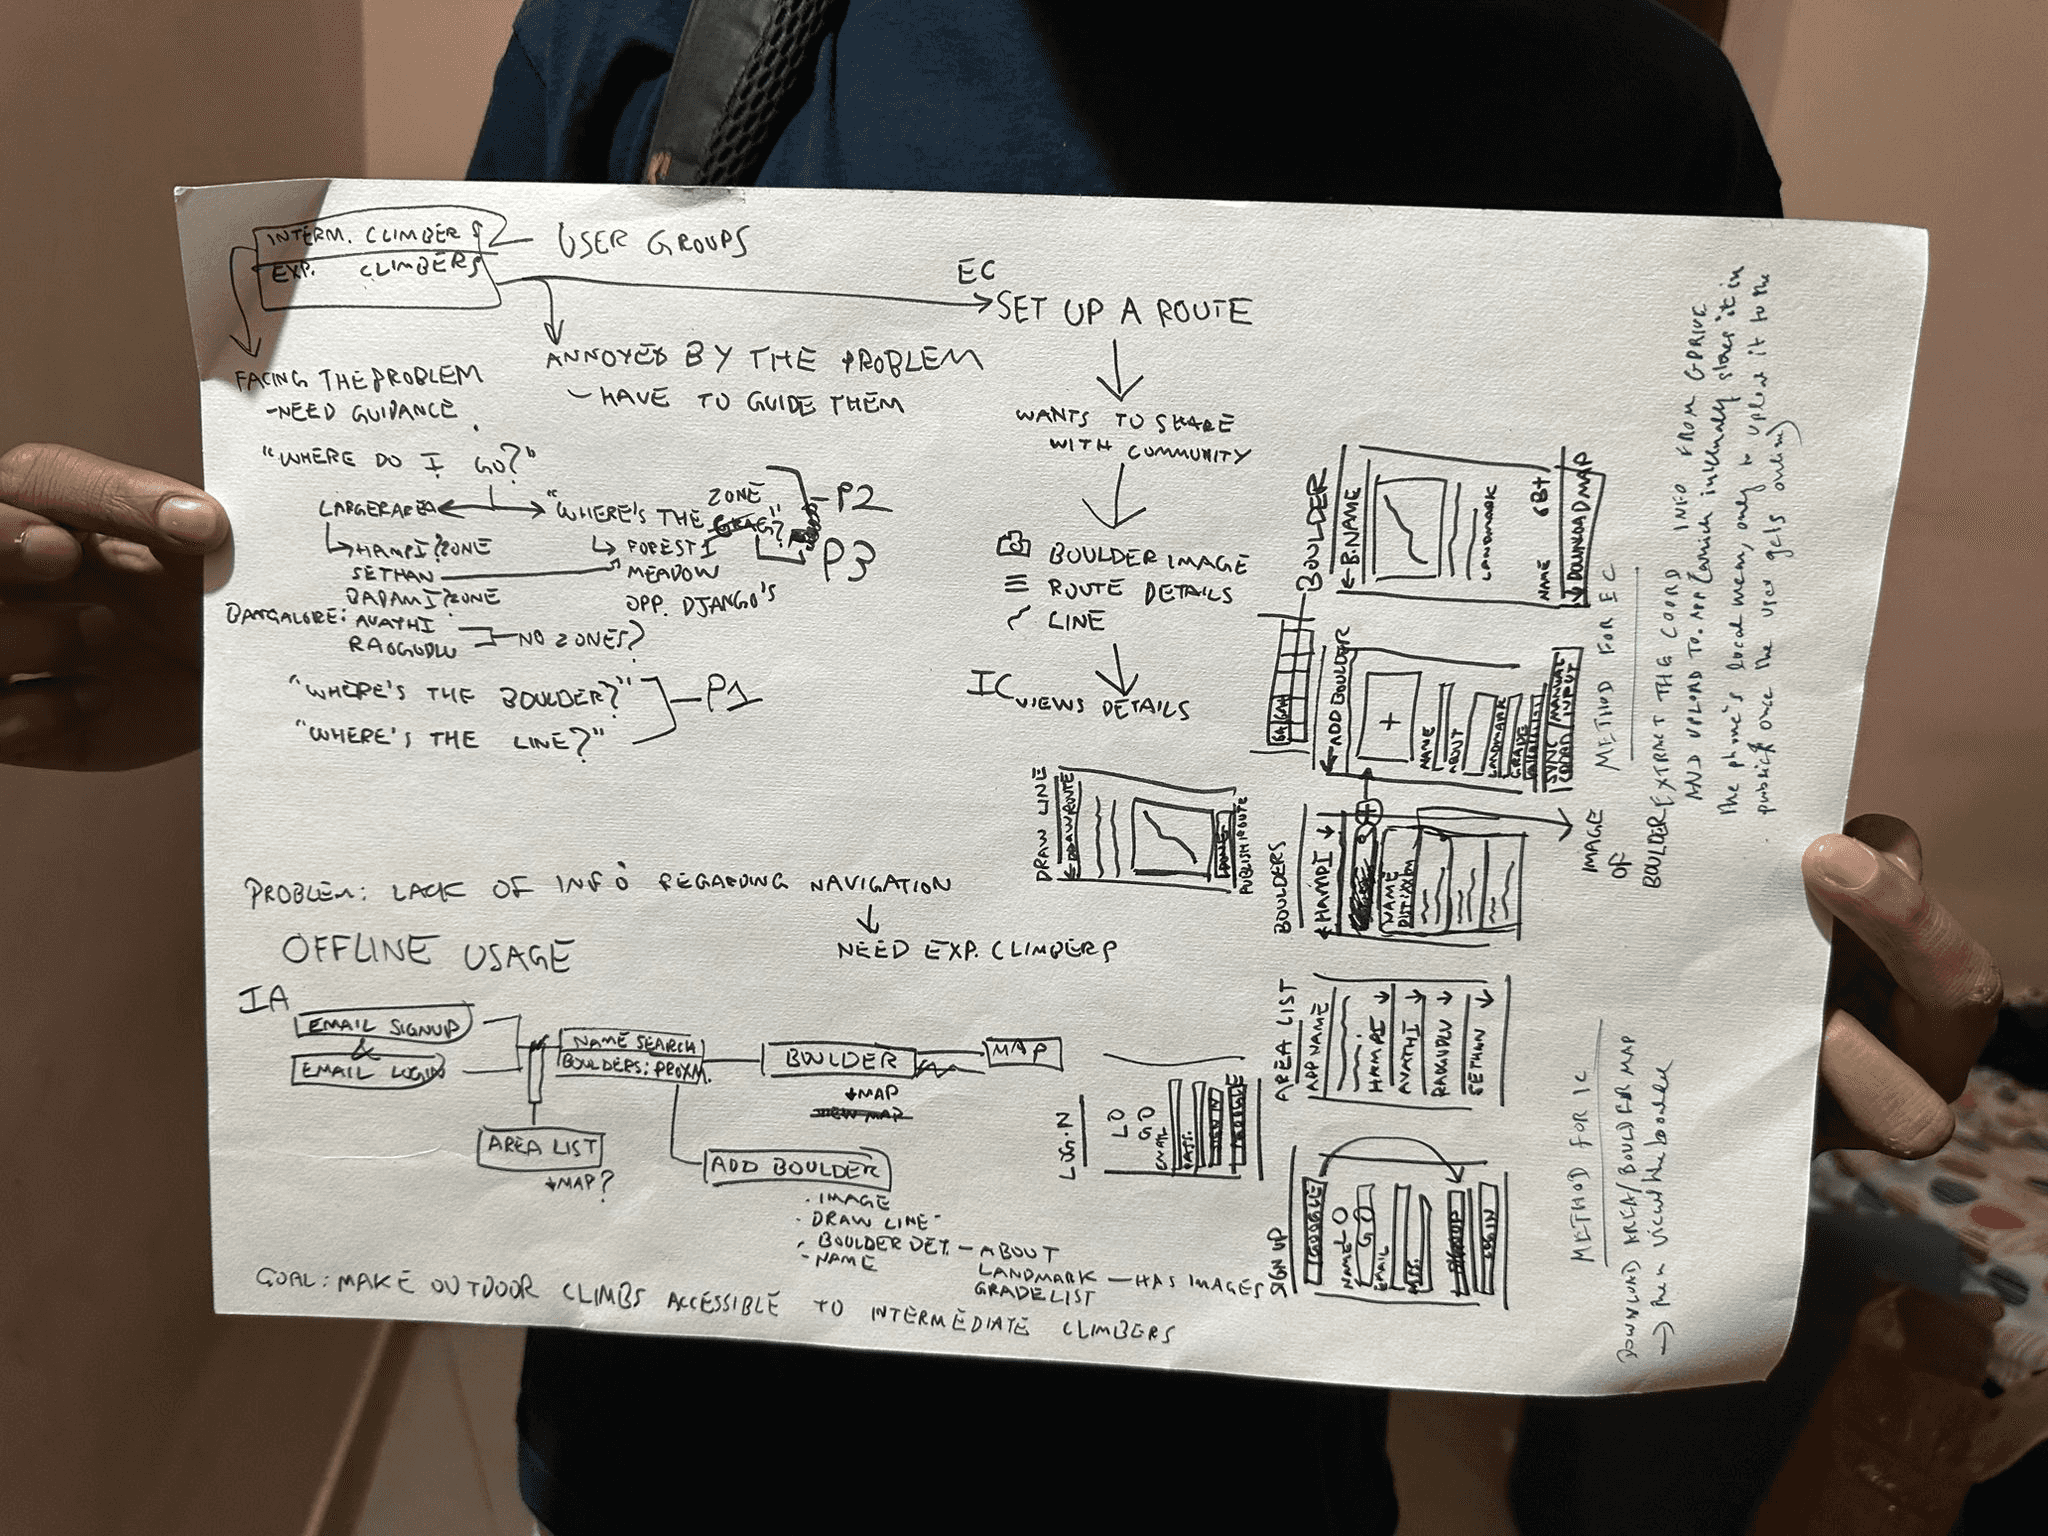 INTERM. CLIMBERS
EXP. CLIMBERS
USER GROUPS
FACING THE PROBLEM
-NEED GUIDANCE
ANNOYED BY THE PROBLEM
- HAVE TO GUIDE THEM
"WHERE DO I GO?"
LARGER AREA
HAMPI ZONE
SETHAN
BADAMI ZONE
BANGALORE: AVATHI
NO ZONES?
"WHERE'S THE ZONE
P2
P3
FOREST I
MEADOW
OPP. DJANGO'S
"WHERE'S THE BOULDER?"
"WHERE'S THE LINE?"
P1
EC
SET UP A ROUTE
WANTS TO SHARE
WITH COMMUNITY
BOULDER IMAGE
ROUTE DETAILS
LINE
IC VIEWS DETAILS
PROBLEM: LACK OF INFO REGARDING NAVIGATION
NEED EXP. CLIMBERS
OFFLINE USAGE
IA
EMAIL SIGNUP
&
EMAIL LOGIN
NAME SEARCH
BOULDERS: PROXM.
BOULDER
MAP
MAP
VIEW MAP
AREA LIST
MAP?
ADD BOULDER
. IMAGE
. DRAW LINE
. BOULDER DET. - ABOUT
- NAME
LANDMARK - HAS IMAGES
GRADE LIST
GOAL: MAKE OUTDOOR CLIMBS ACCESSIBLE TO INTERMEDIATE CLIMBERS
BOULDER
B.NAME
LANDMARK
NAME 6B+
DOWNLOAD MAP
ADD BOULDER
NAME
ABOUT
LANDMARK
GRADE
SYNC/MANUAL
COORD INPUT
DRAW LINE
DRAW ROUTE
PUBLISH ROUTE
BOULDERS
HAMPI
NAME
IMAGE
OF
BOULDER
AREA LIST
APP NAME
HAMPI
AVATHI
SETHAN
LOGIN
LOGO
EMAIL
PASS.
GOOGLE
SIGN UP
GOOGLE
LOGO
NAME
EMAIL
LOGIN
METHOD FOR EC
EXTRACT THE COORD INFO FROM GDRIVE
AND UPLOAD TO APP (which internally stores it in
the phone's local mem, only to upload it to the
public once the user gets online)
METHOD FOR IC
DOWNLOAD AREA/BOULDER MAP
→ then view the boulder